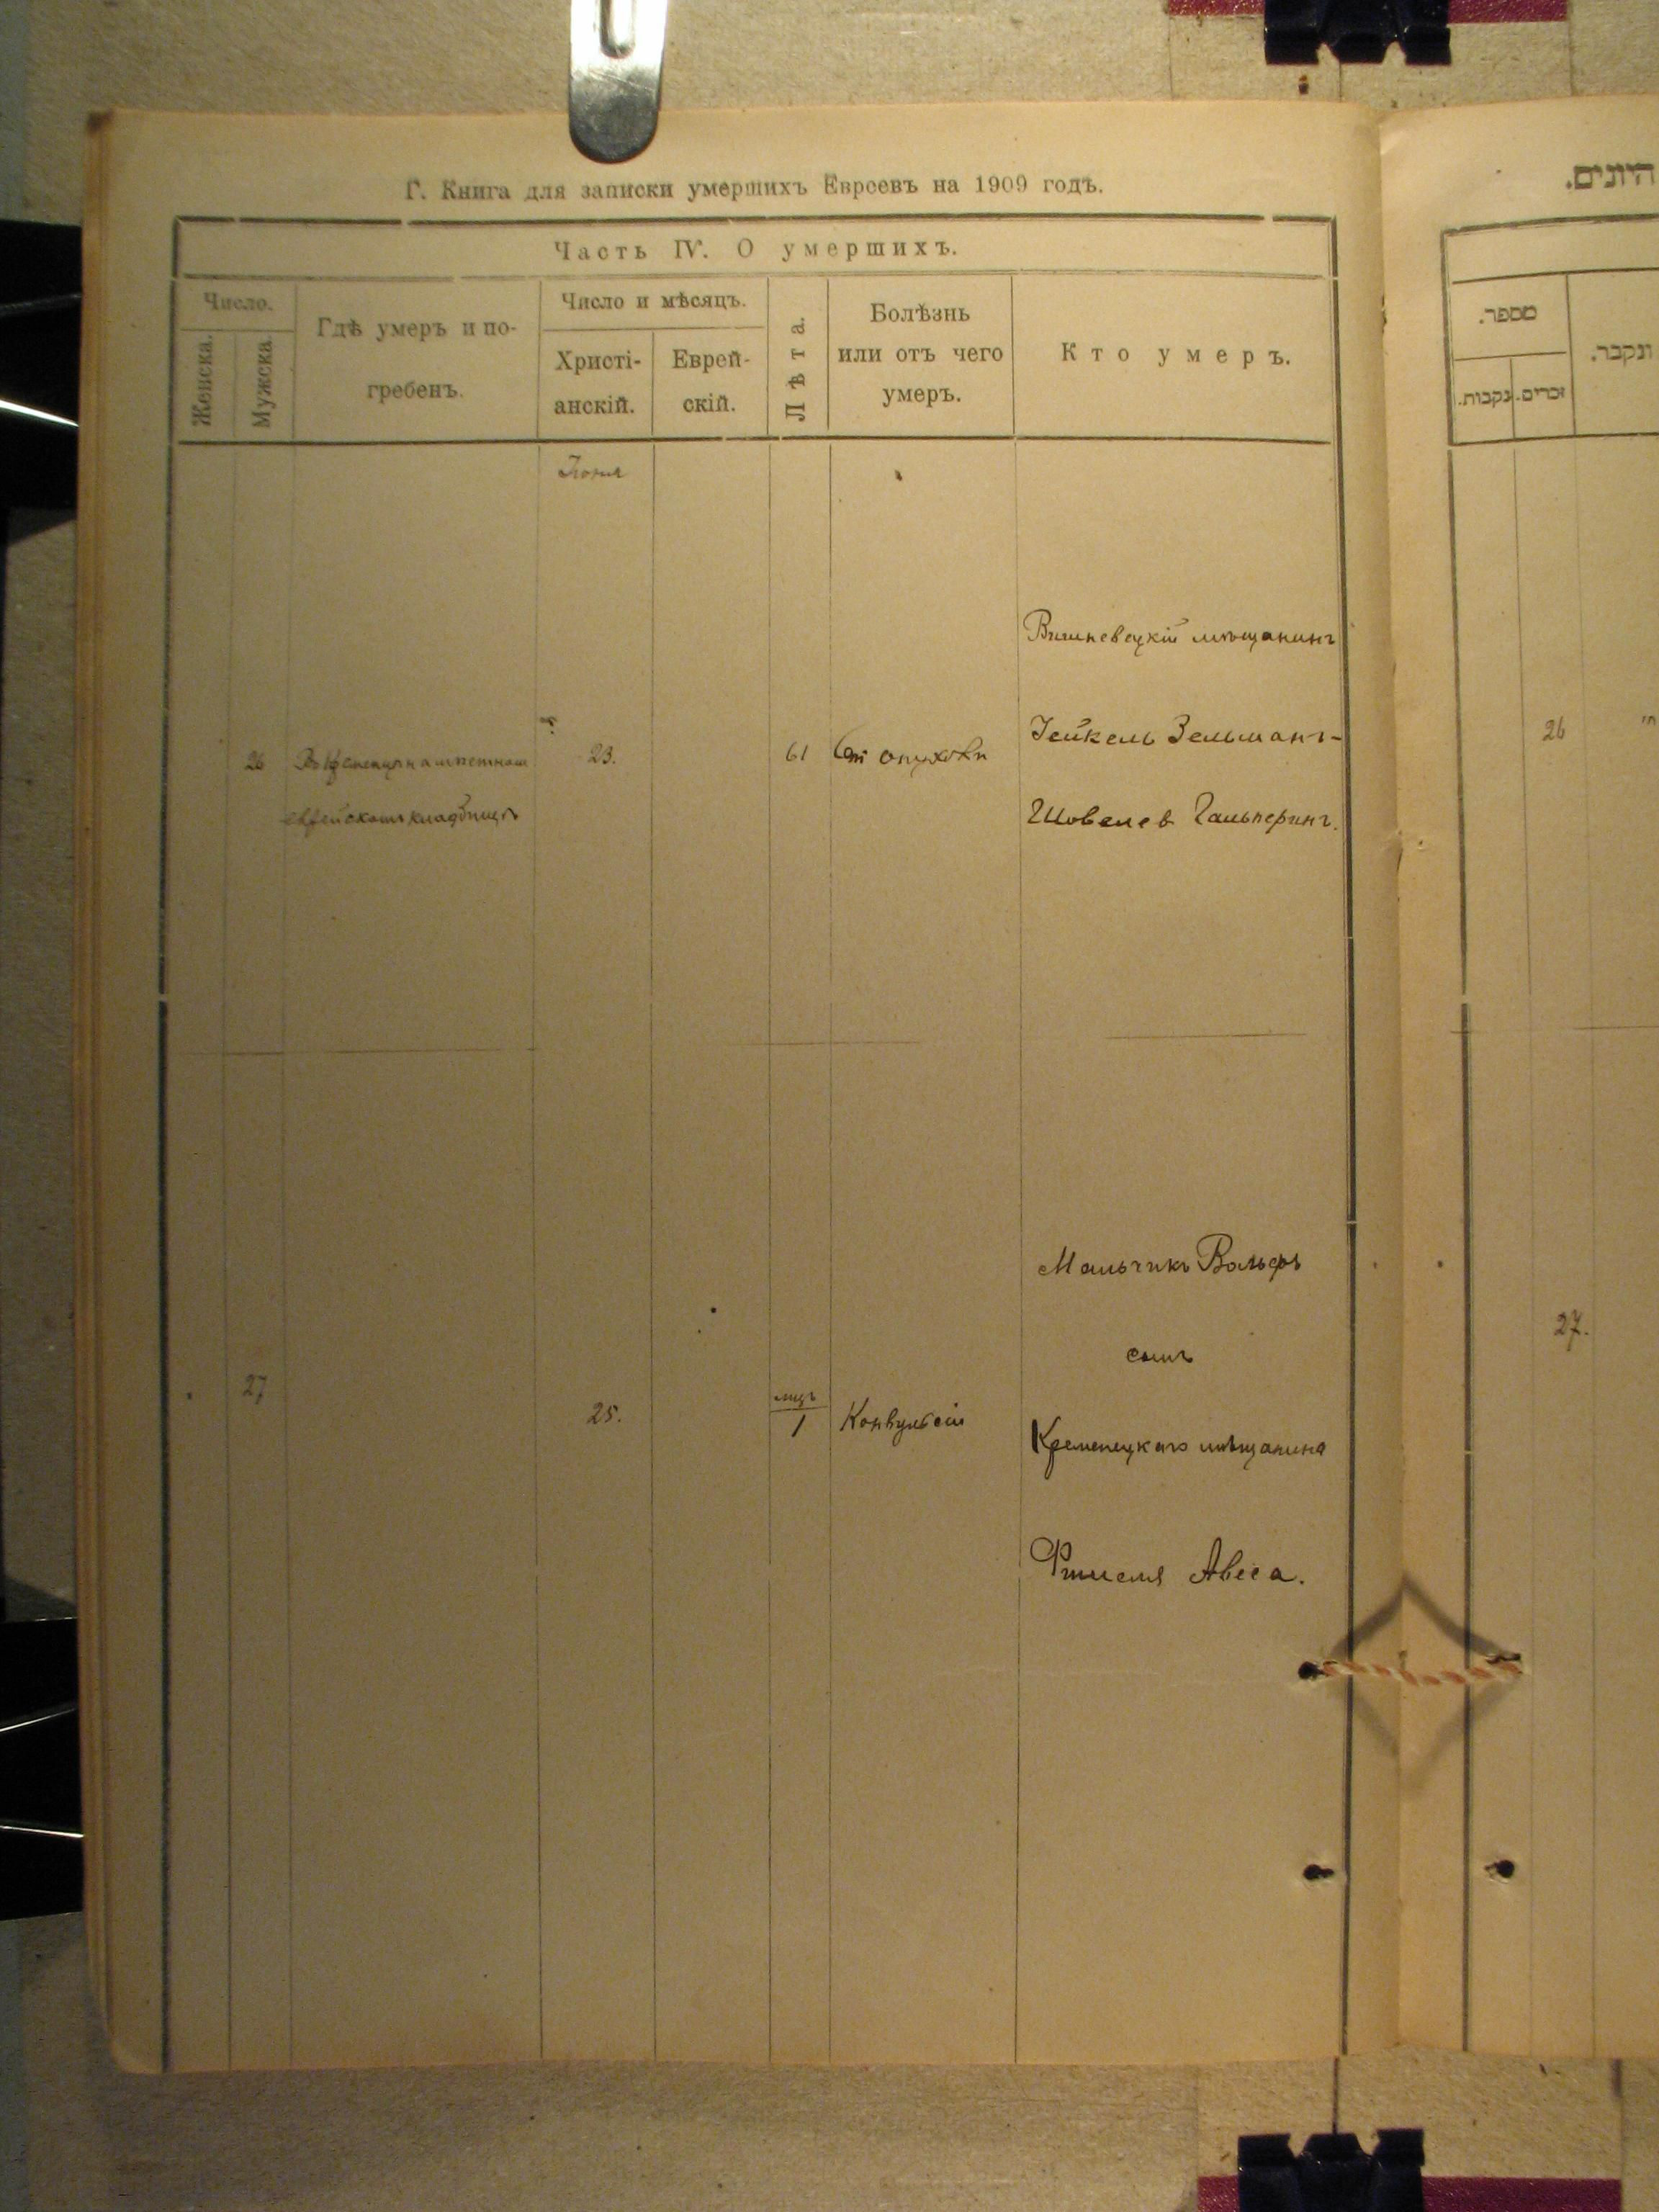 Г. Книга для записки умершихъ Евреевъ на 1909 годъ.
Часть IV. О умершихъ.
Число.
Женска.
Мужска.
Гдѣ умеръ и по-
гребенъ.
Число и мѣсяцъ.
Христі-
анскій.
Еврей-
скій.
Лѣта.
Болѣзнь
или отъ чего
умеръ.
Кто умеръ.
Іюня
Вишневецкій мѣщанинъ
26
Въ Кременцѣ на мѣстномъ
еврейскомъ кладбищѣ
23.
61
От опухоли
Іейкель Зельманъ-
Шовелев Гальперинъ.
27
25.
мцъ
1
Конвульсіи
Мальчикъ Вольфъ
сынъ
Кременецкаго мѣщанина
Авеса.
היונים.
מספר.
נקבות.
זכרים.
ונקבר.
26
27.